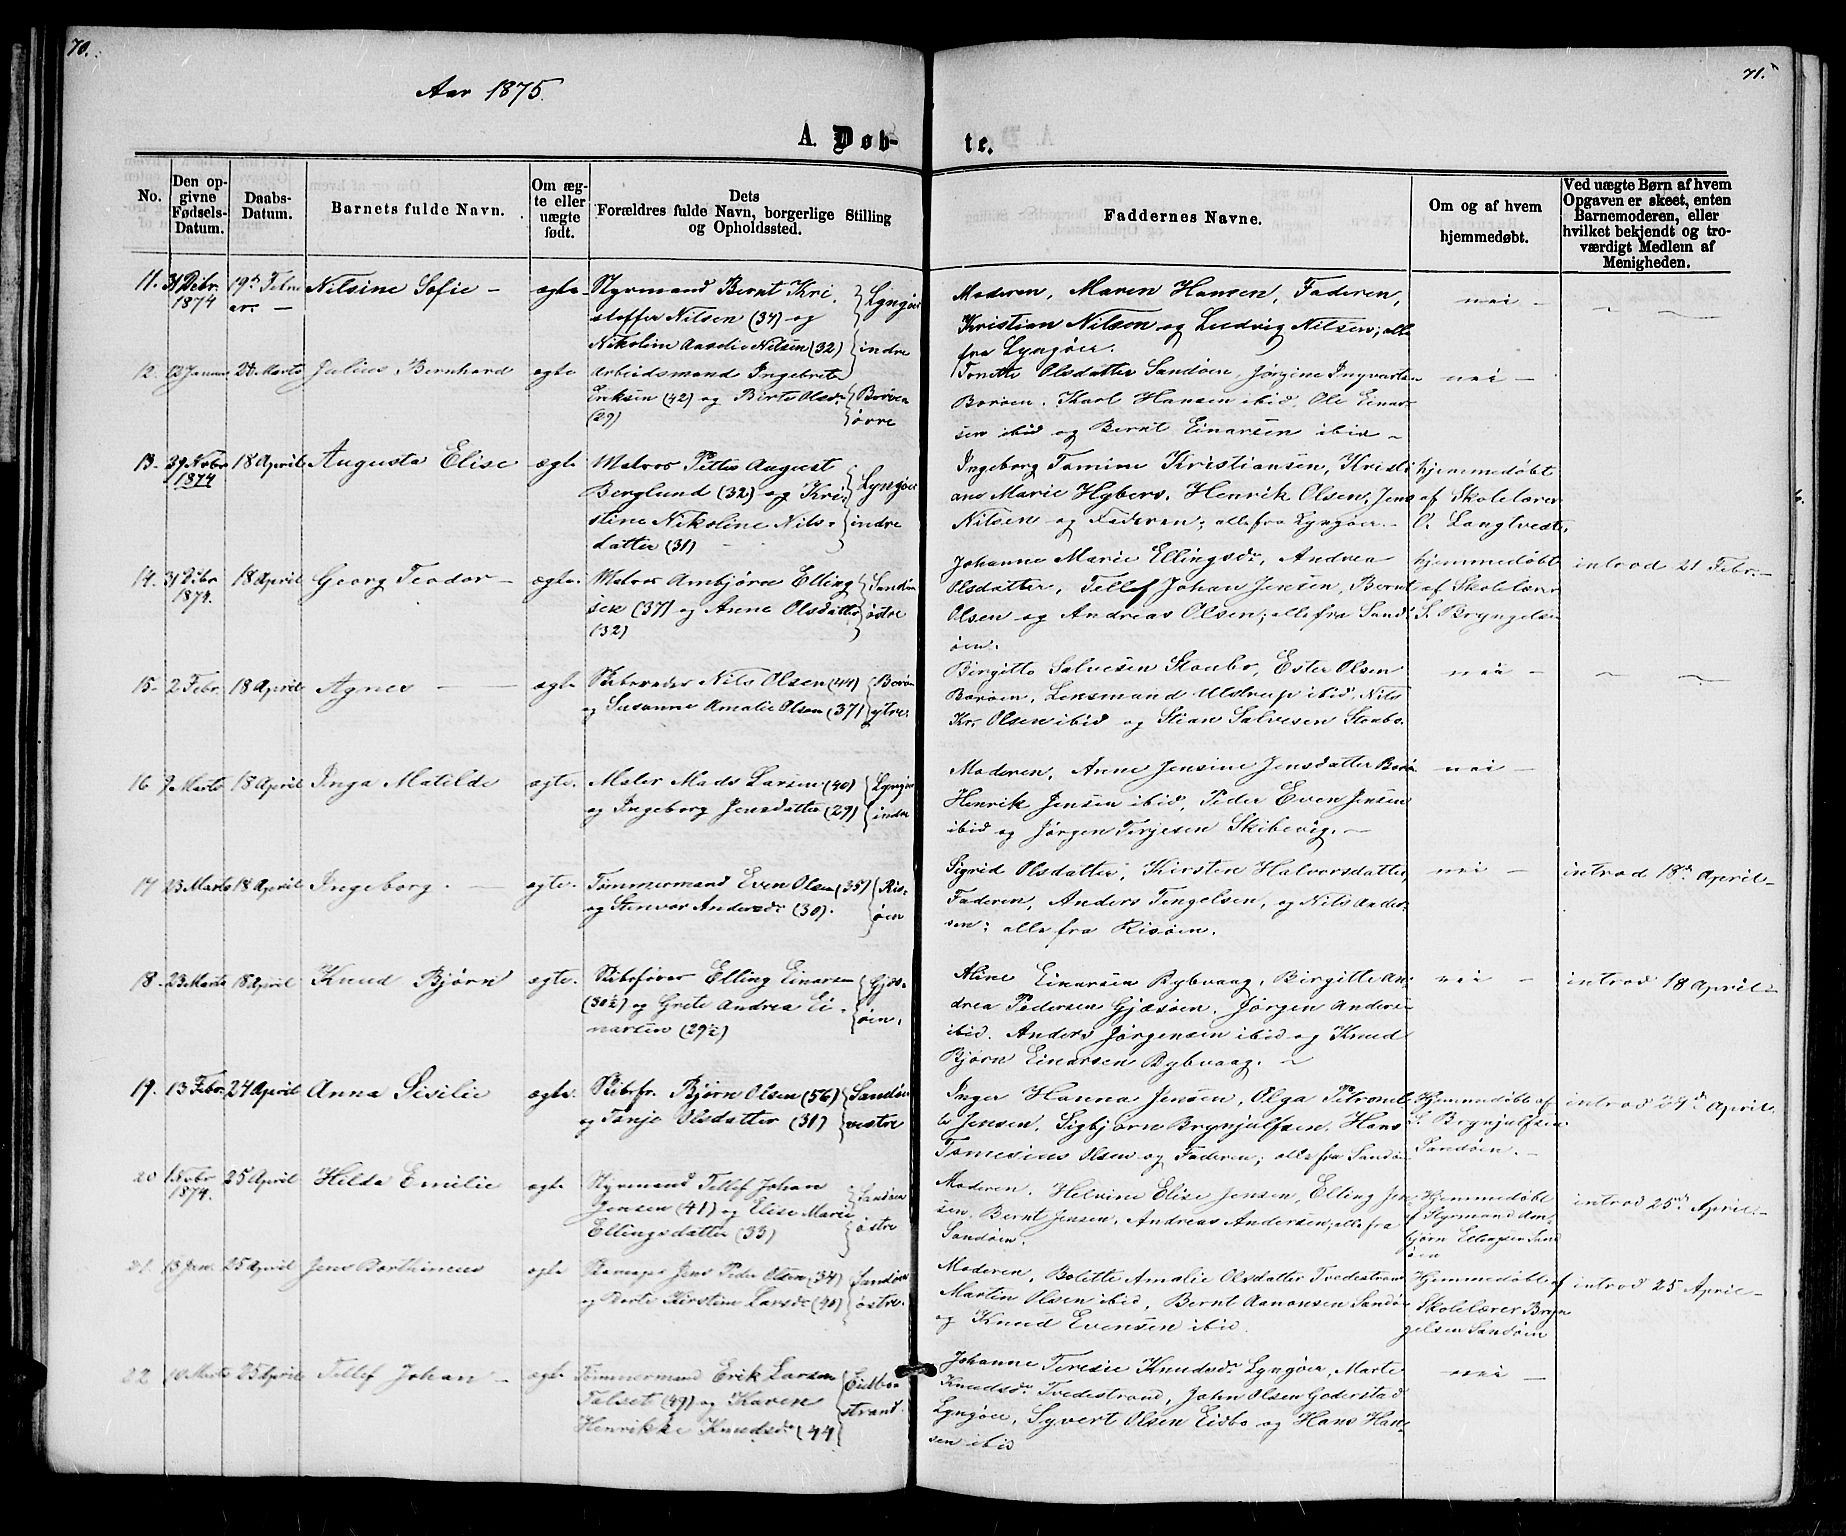 70.
71.
Aar 1875.
A. Døb-
te.
No.
Den op-
givne
Fødsels-
Datum.
Daabs-
Datum.
Barnets fulde Navn.
Om æg-
te eller
uægte
født.
Dets
Forældres fulde Navn, borgerlige Stilling
og Opholdssted.
Faddernes Navne.
Om og af hvem
hjemmedøbt.
Ved uægte Børn af hvem
Opgaven er skeet, enten
Barnemoderen, eller
hvilket bekjendt og tro-
værdigt Medlem af
Menigheden.
11. 31 Dcbr. 1874
Nilsine Sofie -
ægte
Styrmand Bernt Kri
stoffer Nilsen (34) og
Nikoline Nilsen (32)
Lyngøer
indre
Moderen, Maren Hansen, Faderen,
Kristian Nilson og Ludvig Nilsen; alle
fra Lyngøer.
nei -
12. 12 Januar
Marts
Julius Bernhard
ægte
Arbeidsmand Ingebret
Eriksen (42) og Berte Olsdr
Borøen
øvre
Olsdatter Sandøen, Jørgine
Borøen. Karl Hansen ibid, Ole Einar-
sen ibid og Bernt Einarsen ibid -
nei -
13. Nvbr 1874
18 April
Augusta Elise
ægte
Matros Petter August
Berglund (32) og Kri-
stine Nikoline Nils-
datter (31)
Lyngøer
indre
Ingeborg Tomine Kristiansen, Kristi
ane Marie Hybers, Henrik Olsen, Jens
Nilsen og Faderen; alle fra Lyngøer. -
hjemmedøbt
af Skolelærer
O. Langtvedt.
14. 31 Dcbr 1874.
18 April
Georg Teodor -
ægte.
Matros Ambjørn Elling
sen (37) og Anne Olsdatter
(32)
Sandøen
østre
Johanne Marie Ellingsdr, Andrea
Olsdatter, Tellef Johan Jensen, Bernt
Olsen og Andreas Olsen; alle fra Sand-
øen.
hjemmedøbt
af Skolelærer
S. Bryngelsen
introd 21 Febr. -
15. 2 Febr.
18 April
Agnes -
ægte
Nils Olsen (44)
og Susanne Amalie Olsen (37)
Borøen
ytre.
Birgitte Salvesen Staubo, Ester Olsen
Borøen, Lensmand Ulstrup ibid, Nils
Kr. Olsen ibid og Stian Salvesen Staubo.
nei -
16 Marts
18 April
Inga Matilde
ægte.
Maler Mads Larsen (40)
og Ingeborg Jensdatter (29)
Lyngøer
indre
Moderen, Anne Jensine Jensdatter
Henrik Jensen ibid, Peder Even Jensen
ibid og Jørgen Terjesen Skibevig. -
nei -
17 23 Marts
18 April
Ingeborg. -
ægte.
Tømmermand Even Olsen (35)
og Stenvor Andersdr (30).
Ris-
øen
Sigrid Olsdatter, Kirsten Halvorsdatter,
Faderen, Anders Tengelsen, og Nils Ander-
sen; alle fra Risøen.
nei -
introd 18de April -
18. 23 Marts
18 April
Knud Bjørn
ægte.
Skibsfører Elling Einarsen
(30½) og Grete Andrea Ei-
narsen (29½)
Gjæs-
øen.
Aline Einarsen Dybvaag, Birgitte An-
drea Pedersen Gjæsøen, Jørgen Anders-
ibid. Anders Jørgensen ibid og Knud
Bjørn Einarsen Dybvaag. -
nei -
introd 18 April -
19. 13 Febr.
24 April
Anna Sisilie
ægte.
Skibsfr. Bjørn Olsen (56)
og Tonje Olsdatter (31)
Sandøen
vestre
Inger Hanna Jensen, Olga Petronel-
le Jensen, Sigbjørn Brynjulfsen, Hans
Tomesius Olsen og Faderen; alle fra Sandøen
Hjemmedøbt af
S. Brynjulfsen
Sandøen. -
introd 24de April.
20 Nvbr 1874.
25 April
Hilda Emilie
ægte
Styrmand Tellef Johan
Jensen (41) og Elise Marie
Ellingsdatter (33)
Sandøen
østre
Moderen, Helvine Elise Jensen, Elling Jen-
sen. Bernt Jensen, Andreas Andersen; alle fra
Sandøen.
Hjemmedøbt
af Styrmand Am-
bjørn Ellingsen Sand
øen
introd 25de April. -
21. 13 Jan.
25 April
Jens
ægte
Jens Peder Olsen (34)
og Berte Kirstine Larsdr (40)
Sandøen
østre.
Moderen, Bolette Amalie Olsdatter Tvedestrand
Martin Olsen ibid, Bernt Aanonsen Sandøen
og Knud Evensen ibid.
Hjemmedøbt af
Skolelærer Bryn
gelsen Sandøen
introd 25 April -
22 10 Marts
25 April
Tellef Johan -
ægte
Tømmermand Erik Larsen
Talset (49) og Karen
Henrikke Knudsdr (44)
Eidbo
strand.
Johanne Teresie Knudsdr Lyngøer, Marte
Knudsdr Tvedestrand, John Olsen Goderstad
Lyngøer, Syvert Olsen Eidbo og Hans Han-
sen ibid
nei -